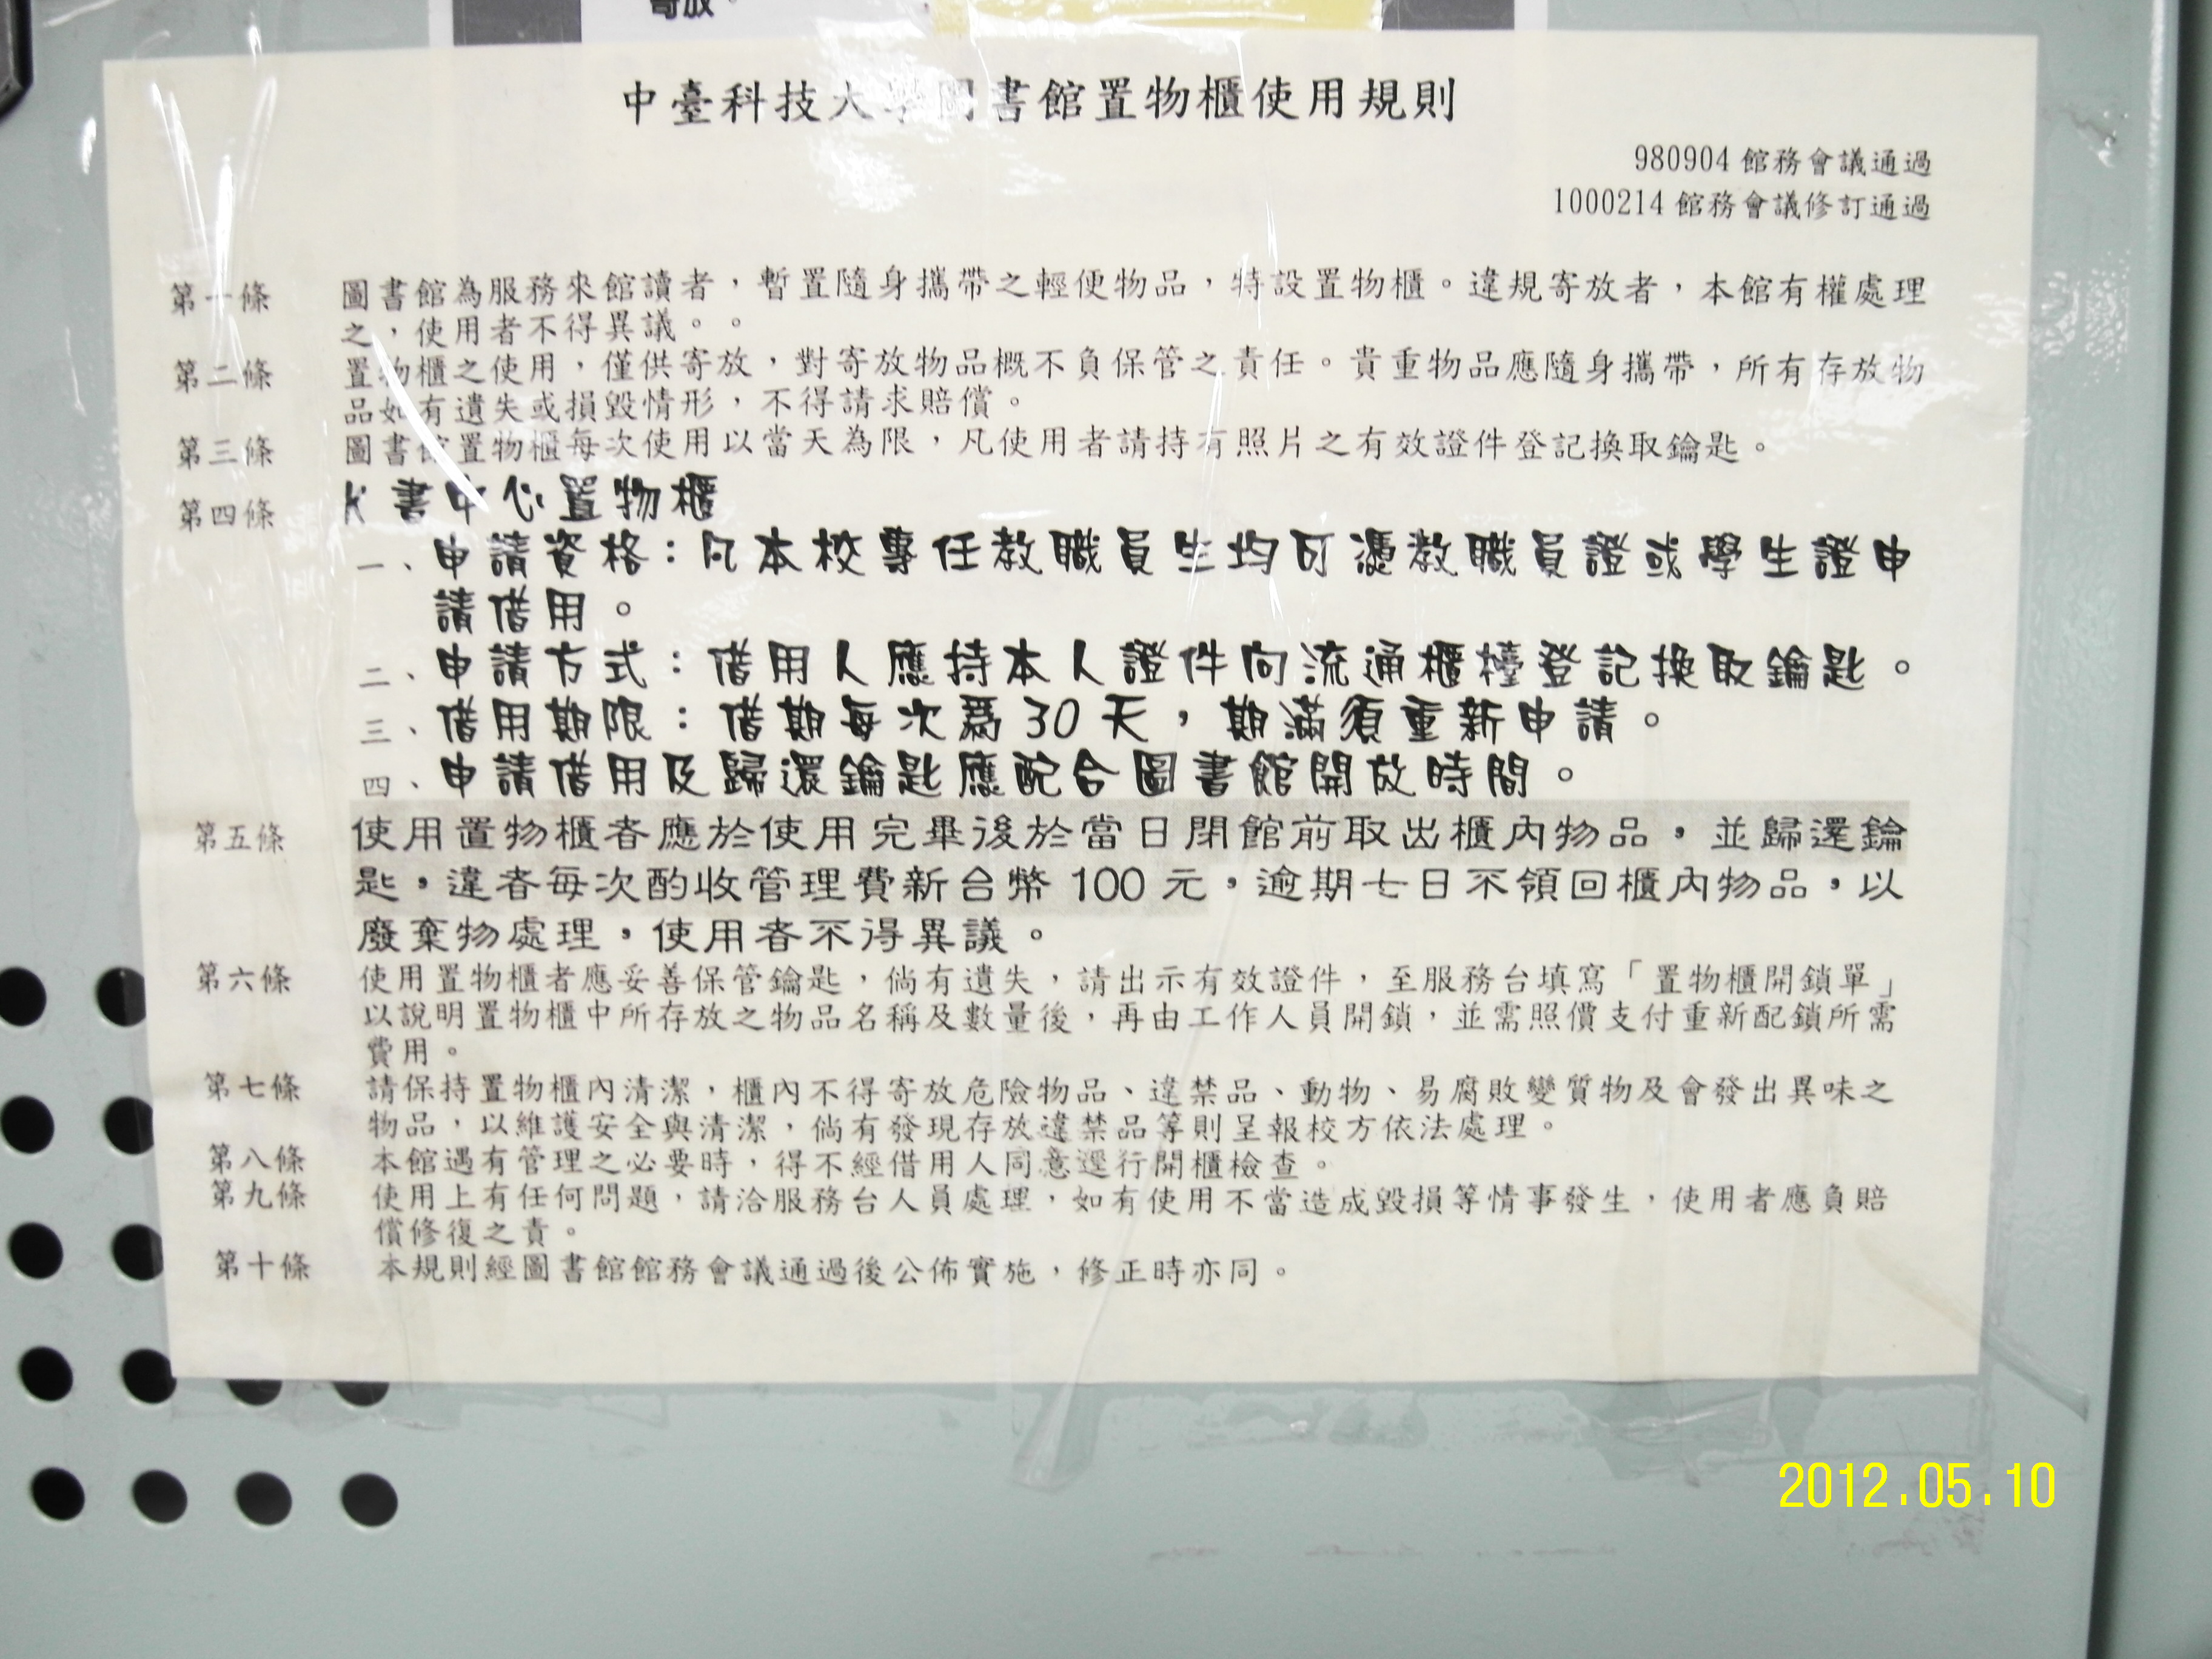 寄放。
中臺科技大學圖書館置物櫃使用規則
980904 館務會議通過
1000214 館務會議修訂通過
第一條 圖書館為服務來館讀者，暫置隨身攜帶之輕便物品，特設置物櫃。違規寄放者，本館有權處理
之，使用者不得異議。。
第二條 置物櫃之使用，僅供寄放，對寄放物品概不負保管之責任。貴重物品應隨身攜帶，所有存放物
品如有遺失或損毀情形，不得請求賠償。
第三條 圖書館置物櫃每次使用以當天為限，凡使用者請持有照片之有效證件登記換取鑰匙。
第四條 K 書中心置物櫃
一、申請資格：凡本校專任教職員生均可憑教職員證或學生證申
請借用。
二、申請方式：借用人應持本人證件向流通櫃檯登記換取鑰匙。
三、借用期限：借期每次為 30 天，期滿須重新申請。
四、申請借用及歸還鑰匙應配合圖書館開放時間。
第五條 使用置物櫃者應於使用完畢後於當日閉館前取出櫃內物品，並歸還鑰
匙，違者每次酌收管理費新台幣 100 元，逾期七日不領回櫃內物品，以
廢棄物處理，使用者不得異議。
第六條 使用置物櫃者應妥善保管鑰匙，倘有遺失，請出示有效證件，至服務台填寫「置物櫃開鎖單」
以說明置物櫃中所存放之物品名稱及數量後，再由工作人員開鎖，並需照價支付重新配鎖所需
費用。
第七條 請保持置物櫃內清潔，櫃內不得寄放危險物品、違禁品、動物、易腐敗變質物及會發出異味之
物品，以維護安全與清潔，倘有發現存放違禁品等則呈報校方依法處理。
第八條 本館遇有管理之必要時，得不經借用人同意逕行開櫃檢查。
第九條 使用上有任何問題，請洽服務台人員處理，如有使用不當造成毀損等情事發生，使用者應負賠
償修復之責。
第十條 本規則經圖書館館務會議通過後公佈實施，修正時亦同。
2012.05.10